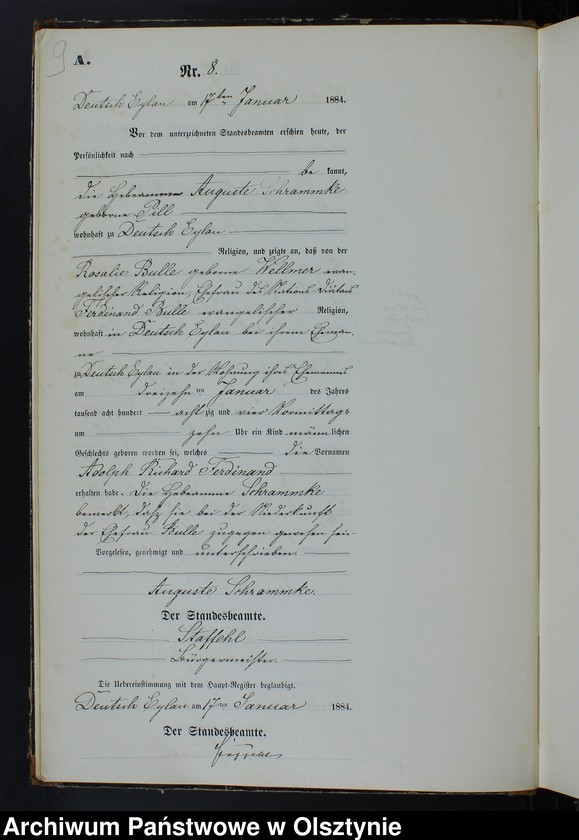 9
A.
Nr. 8.
Deutsch Eylau am 17ten Januar 1884.
Vor dem unterzeichneten Standesbeamten erschien heute, der
Persönlichkeit nach
be kannt,
die Hebeamme Auguste Schrammke
geborne Pill
wohnhaft zu Deutsch Eylau
Religion, und zeigte an, daß von der
Rosalie Bulle geborne Wellmer evan-
gelischer Religion, Ehefrau des Stations-Diätars
Ferdinand Bulle evangelischer Religion,
wohnhaft in Deutsch Eylau bei ihrem Eheman-
ne
zu Deutsch Eylau in der Wohnung ihres Ehemannes
am dreizehnten Januar des Jahres
tausend acht hundert achtzig und vier Vormittags
um zehn Uhr ein Kind männlichen
Geschlechts geboren worden sei, welches die Vornamen
Adolph Richard Ferdinand
erhalten habe. Die Hebeamme Schrammke
bemerkt, daß sie bei der Niederkunft
der Ehefrau Bulle zugegen gewesen sei.
Vorgelesen, genehmigt und unterschrieben
Auguste Schrammke.
Der Standesbeamte.
Staffehl
Bürgermeister.
Die Uebereinstimmung mit dem Haupt-Register beglaubigt.
Deutsch Eylau am 17ten Januar 1884.
Der Standesbeamte.
Archiwum Państwowe w Olsztynie